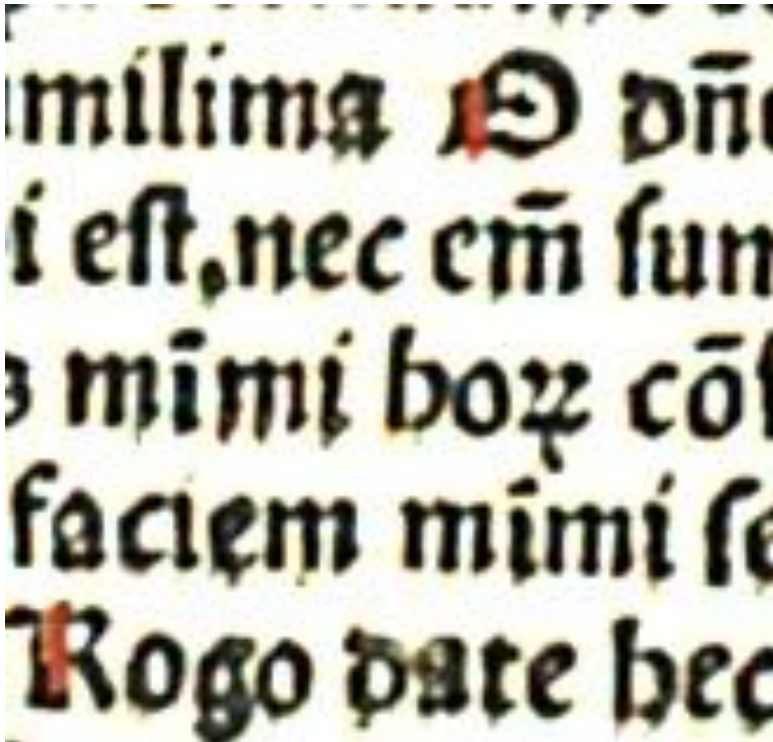 milima O dn̄e
i eſt, nec em̄ ſun
mīmi hoꝝ cōſ
faciem mīmi ſe
Rogo date hec